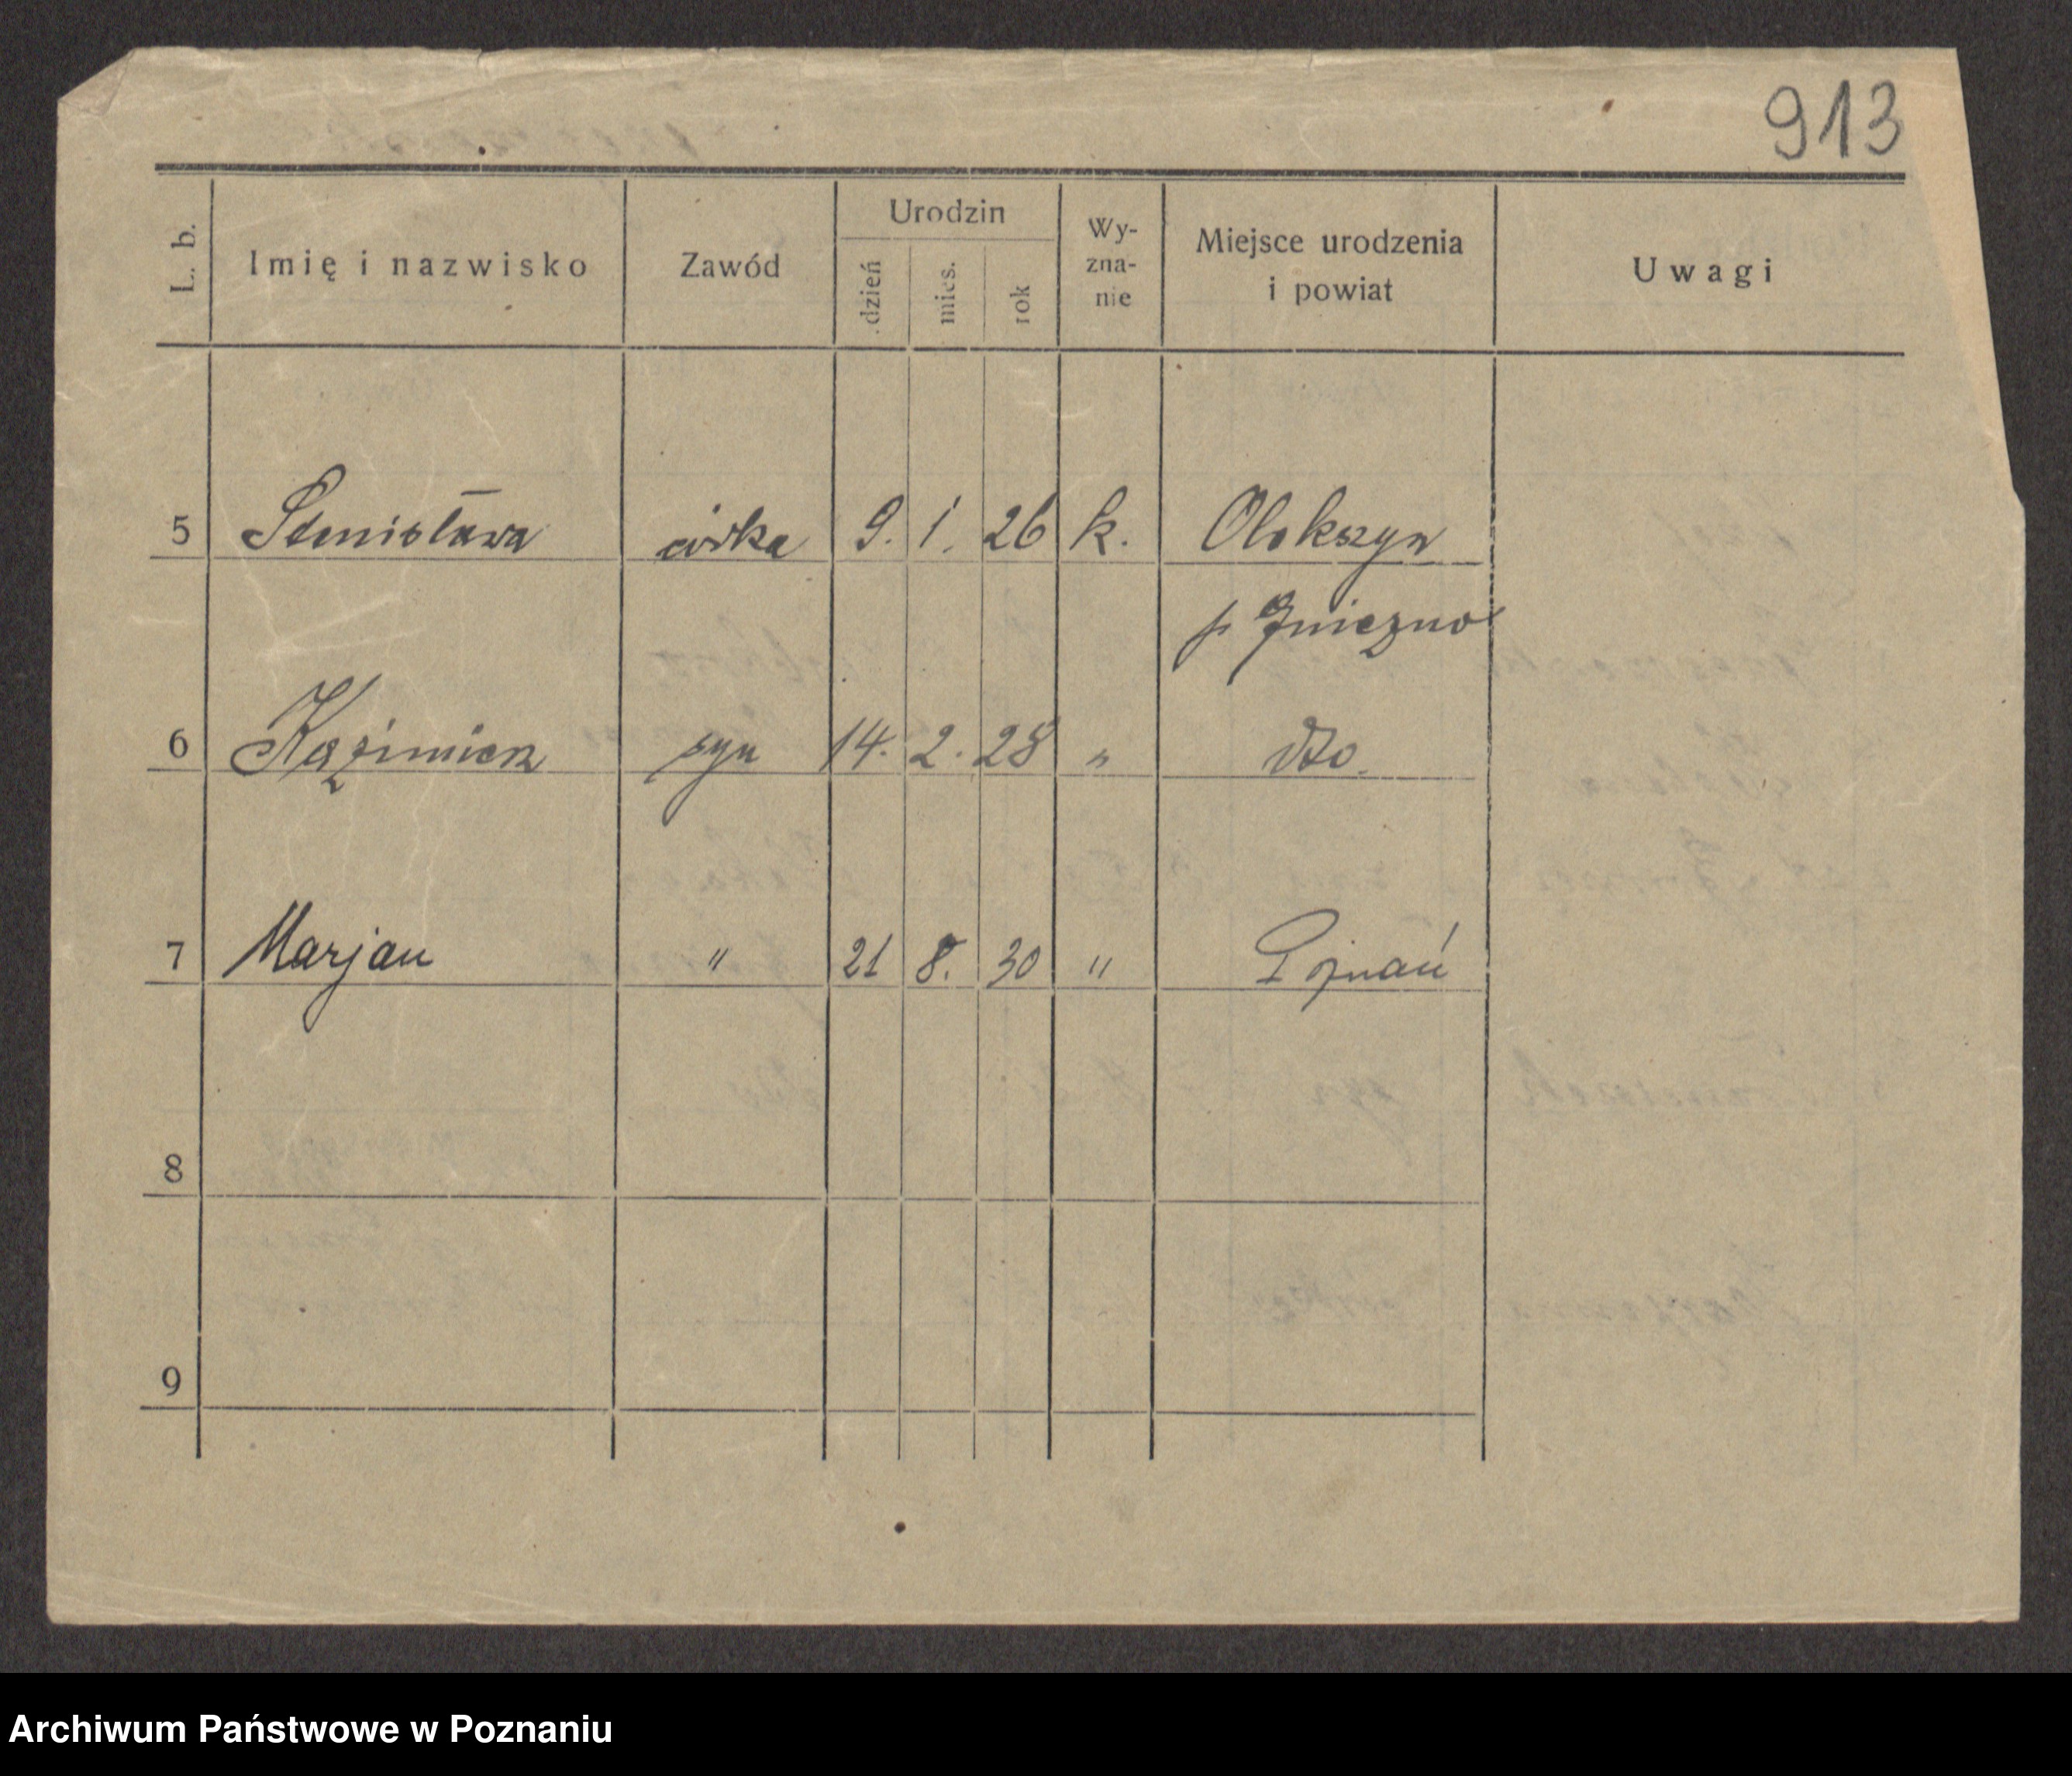 913
L. b.
Imię i nazwisko
Zawód
Urodzin
dzień
mies.
rok
Wy-
zna-
nie
Miejsce urodzenia
i powiat
Uwagi
5 Stanisława córka 9. 1. 26 k.
p Gniezno
6 Kazimierz syn 14. 2. 28 " dto.
7 Marjan " 21 8. 30 " Poznań
8
9
Archiwum Państwowe w Poznaniu